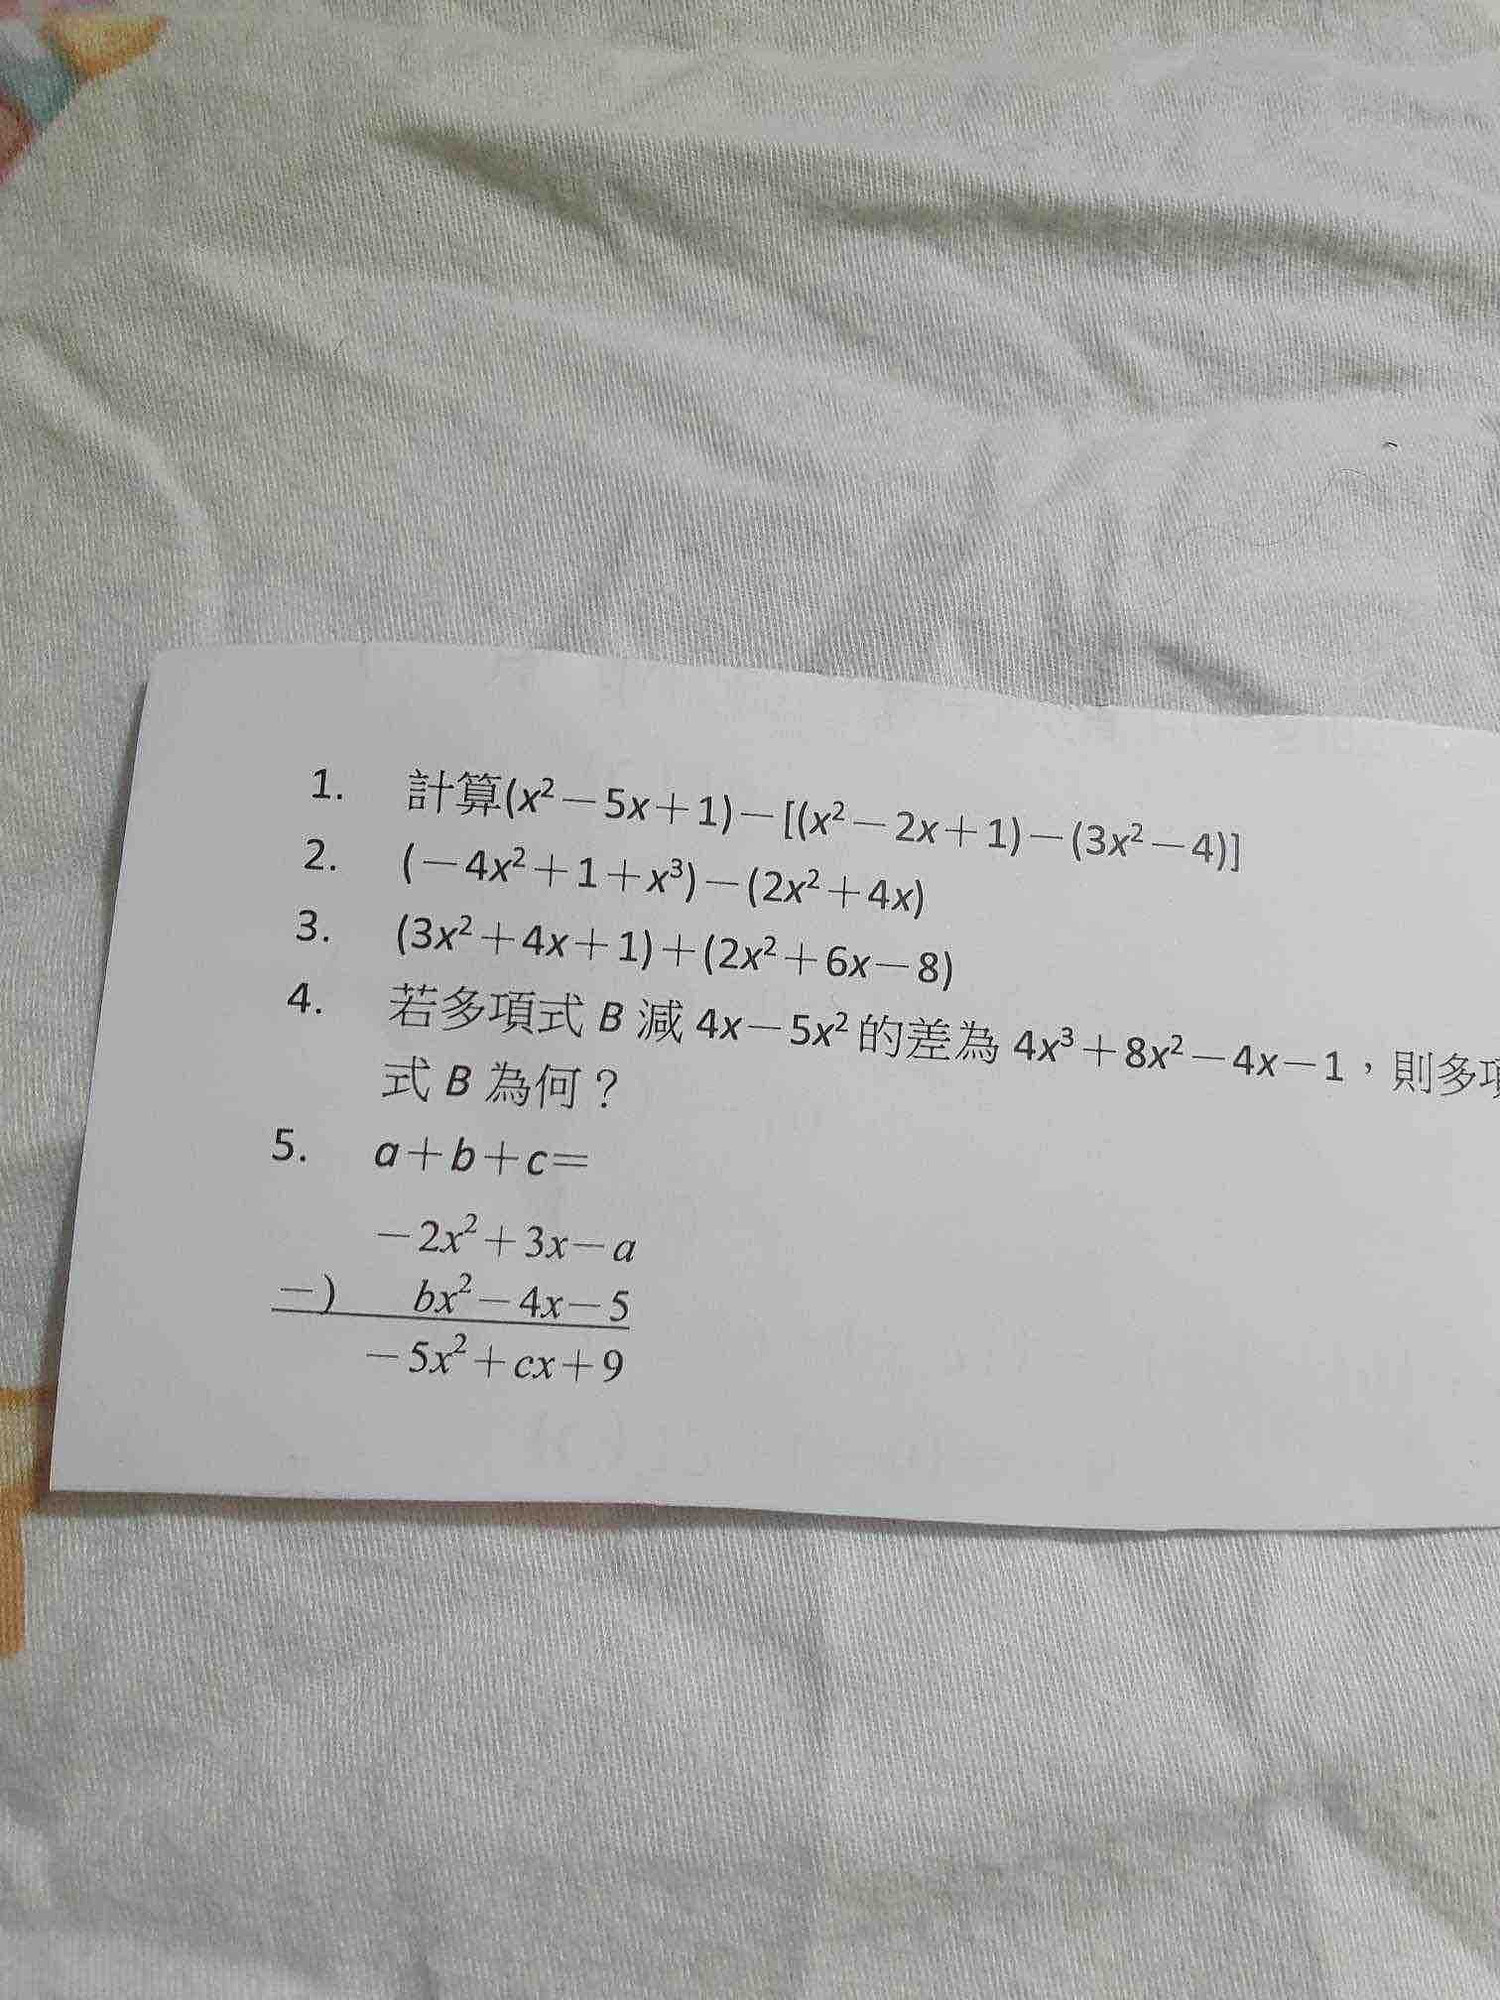 1. 計算(x²－5x＋1)－[(x²－2x＋1)－(3x²－4)]
2. (－4x²＋1＋x³)－(2x²＋4x)
3. (3x²＋4x＋1)＋(2x²＋6x－8)
4. 若多項式 B 減 4x－5x² 的差為 4x³＋8x²－4x－1，則多項
式 B 為何？
5. a＋b＋c＝
－2x²＋3x－a
－) bx²－4x－5
－5x²＋cx＋9